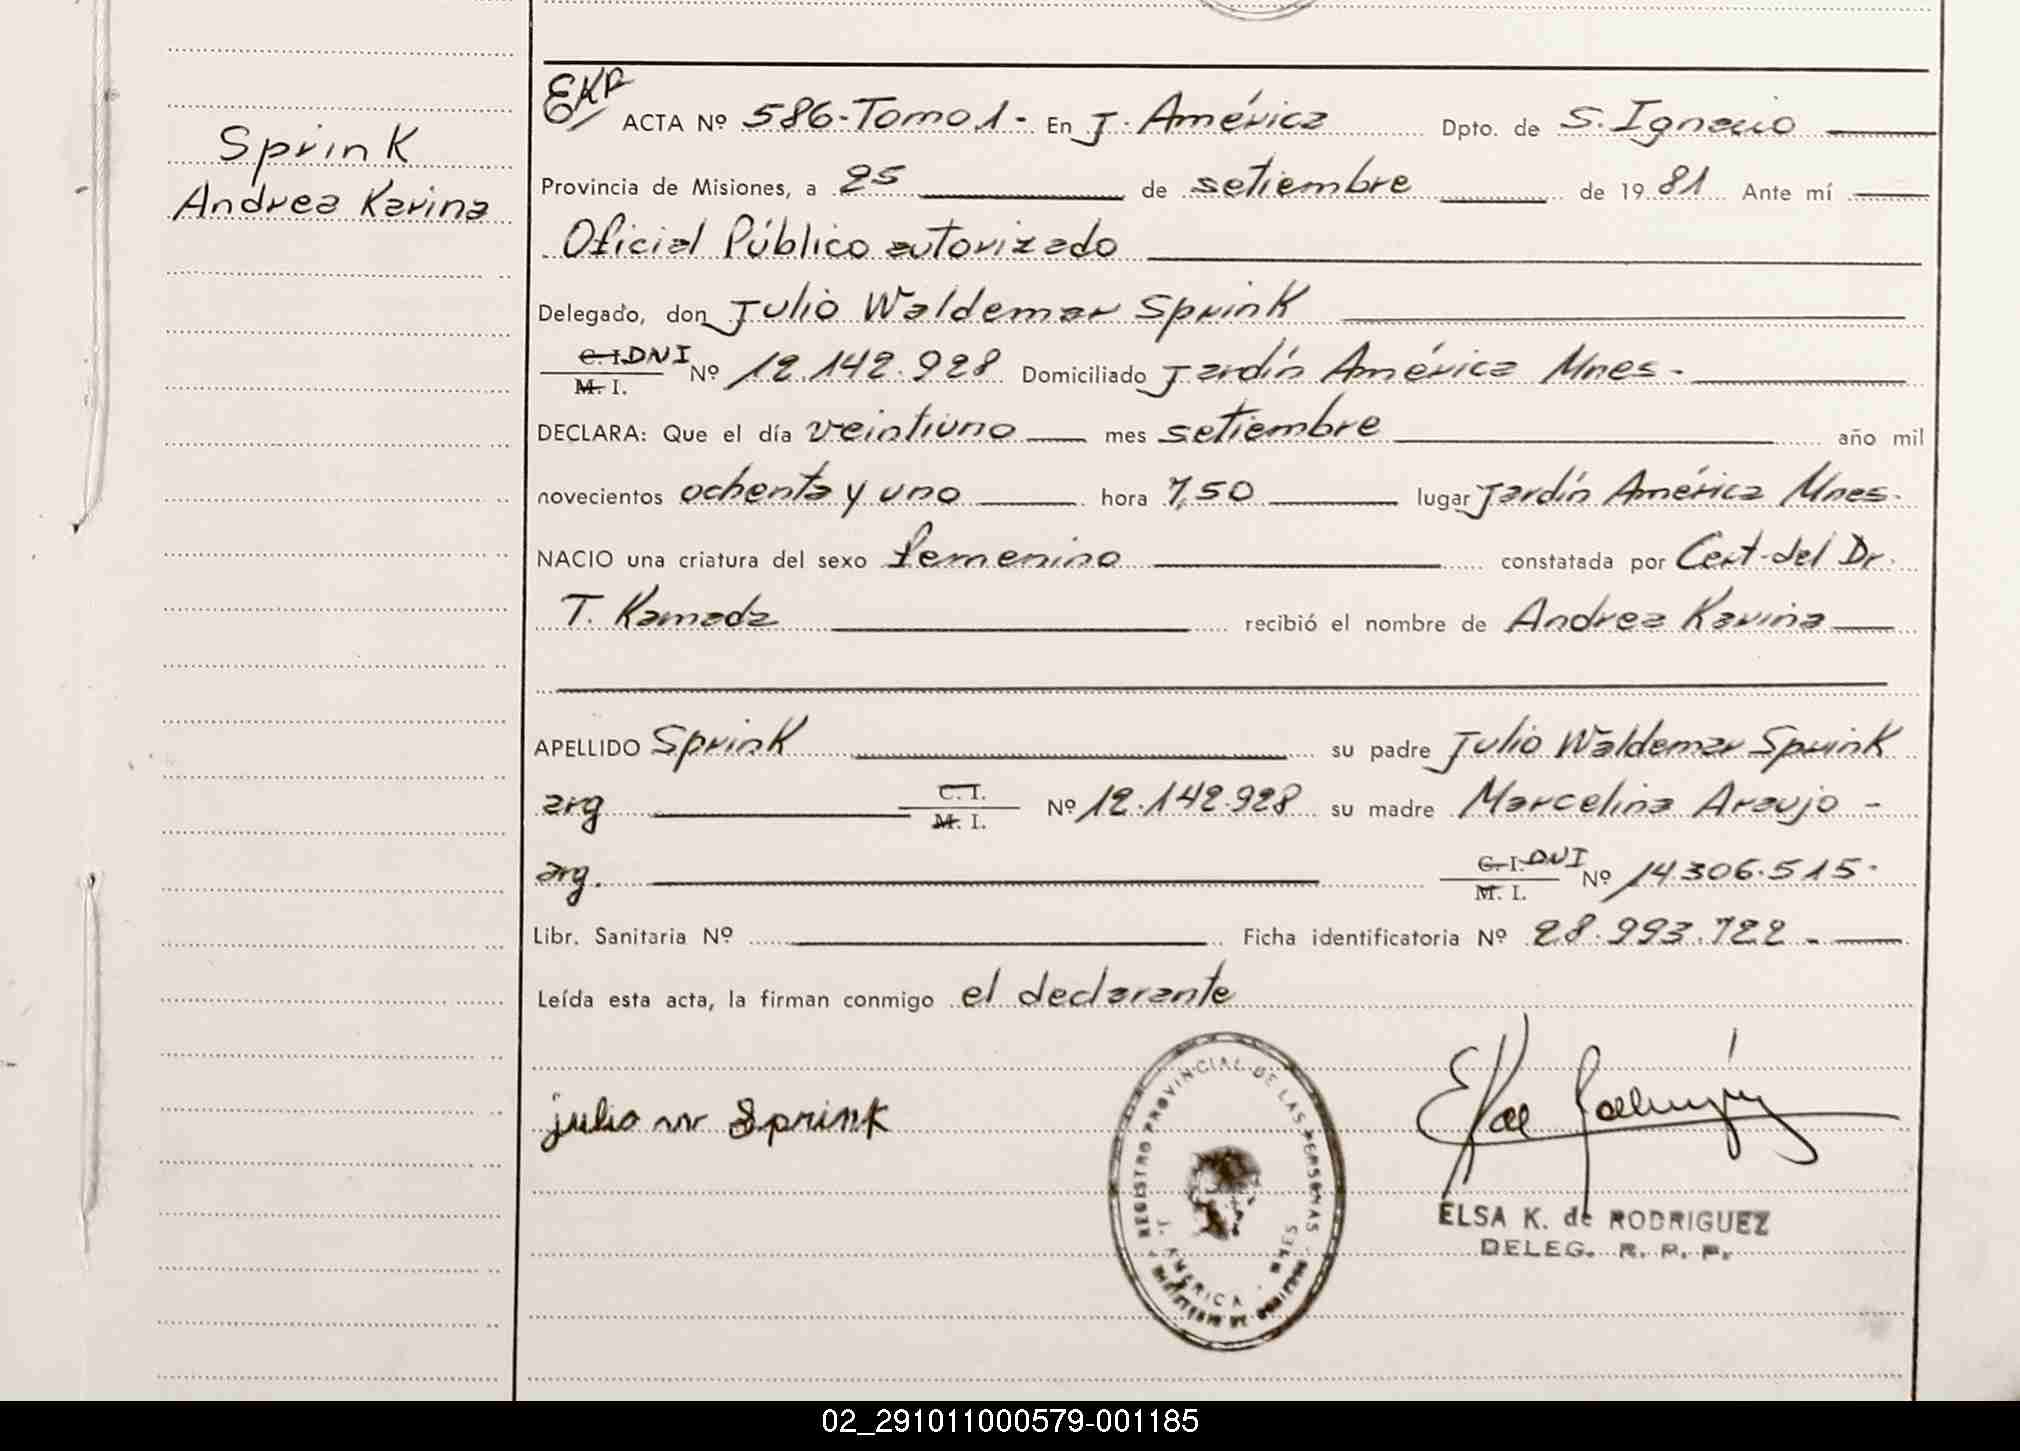 Sprink
Andrea Karina
EKR
ACTA Nº 586-Tomo 1- En J. América Dpto. de S. Ignacio
Provincia de Misiones, a 25 de setiembre de 1981 Ante mí
Oficial Público autorizado
Delegado, don Julio Waldemar Sprink
C. I. DNI
M. I. Nº 12.142.928 Domiciliado Jardín América Mnes.
DECLARA: Que el día veintiuno mes setiembre año mil
novecientos ochenta y uno hora 7,50 lugar Jardín América Mnes.
NACIO una criatura del sexo femenino constatada por Cert. del Dr.
T. Kamada recibió el nombre de Andrea Karina
APELLIDO Sprink su padre Julio Waldemar Sprink
arg C. I.
M. I. Nº 12.142.928 su madre Marcelina Araujo -
arg. C. I. DNI
M. I. Nº 14.306.515.
Libr. Sanitaria Nº Ficha identificatoria Nº 28.993.722.-
Leída esta acta, la firman conmigo el declarante
julio w Sprink
REGISTRO PROVINCIAL DE LAS PERSONAS
J. AMERICA - MNES
MINISTERIO DE GOBIERNO
ELSA K. de RODRIGUEZ
DELEG. R. P. P.
02_291011000579-001185